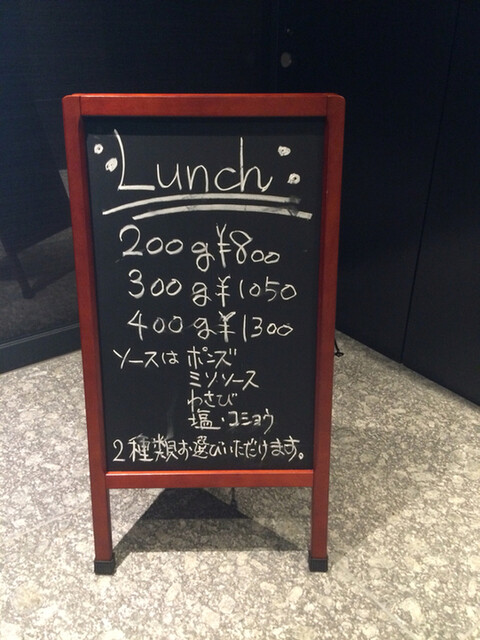 Lunch
200g ¥800
300g ¥1050
400g ¥1300
ソースは ポンズ
ミソソース
わさび
塩・コショウ
2種類お選びいただけます。